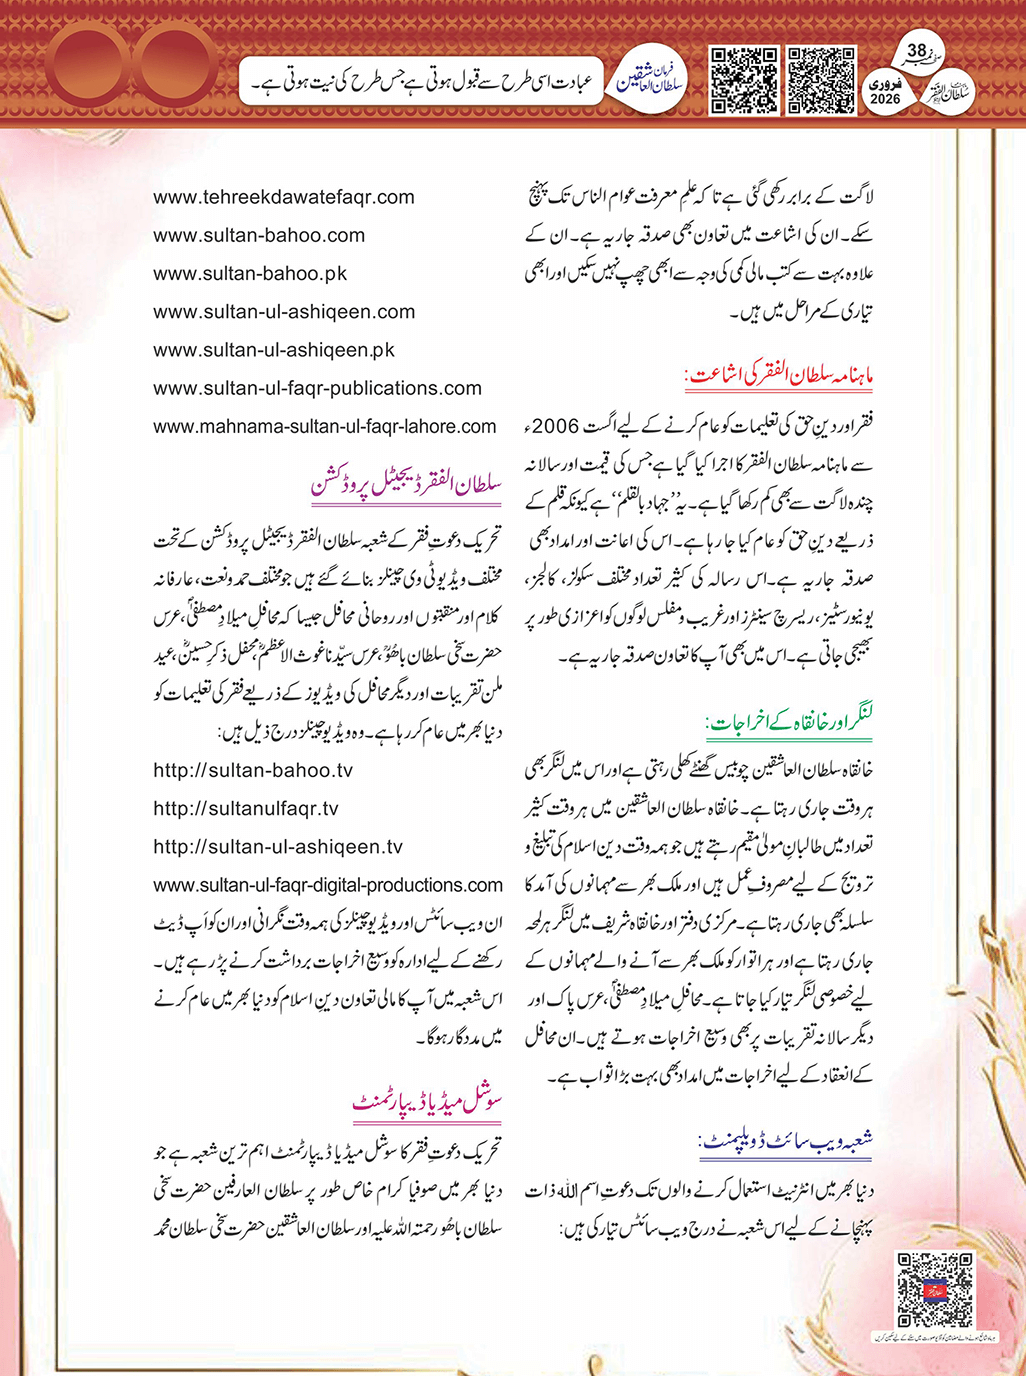 عبادت اسی طرح سے قبول ہوتی ہے جس طرح کی نیت ہوتی ہے۔
فرمان سلطان العاشقین
صفحہ نمبر 38
فروری 2026
سلطان الفقر
لاگت کے برابر رکھی گئی ہے تاکہ علمِ معرفت عوام الناس تک پہنچ
سکے۔ ان کی اشاعت میں تعاون بھی صدقہ جاریہ ہے۔ ان کے
علاوہ بہت سے کتب مالی کمی کی وجہ سے ابھی چھپ نہیں سکیں اور ابھی
تیاری کے مراحل میں ہیں۔
ماہنامہ سلطان الفقر کی اشاعت:
فقر اور دینِ حق کی تعلیمات کو عام کرنے کے لیے اگست 2006ء
سے ماہنامہ سلطان الفقر کا اجرا کیا گیا ہے جس کی قیمت اور سالانہ
چندہ لاگت سے بھی کم رکھا گیا ہے۔ یہ ’’جہاد بالقلم‘‘ ہے کیونکہ قلم کے
ذریعے دینِ حق کو عام کیا جا رہا ہے۔ اس کی اعانت اور امداد بھی
صدقہ جاریہ ہے۔ اس رسالہ کی کثیر تعداد مختلف سکولز، کالجز،
یونیورسٹیز، ریسرچ سینٹرز اور غریب و مفلس لوگوں کو اعزازی طور پر
بھیجی جاتی ہے۔ اس میں بھی آپ کا تعاون صدقہ جاریہ ہے۔
لنگر اور خانقاہ کے اخراجات:
خانقاہ سلطان العاشقین چوبیس گھنٹے کھلی رہتی ہے اور اس میں لنگر بھی
ہر وقت جاری رہتا ہے۔ خانقاہ سلطان العاشقین میں ہر وقت کثیر
تعداد میں طالبانِ مولیٰ مقیم رہتے ہیں جو ہمہ وقت دین اسلام کی تبلیغ و
ترویج کے لیے مصروفِ عمل ہیں اور ملک بھر سے مہمانوں کی آمد کا
سلسلہ بھی جاری رہتا ہے۔ مرکزی دفتر اور خانقاہ شریف میں لنگر ہر لمحہ
جاری رہتا ہے اور ہر اتوار کو ملک بھر سے آنے والے مہمانوں کے
لیے خصوصی لنگر تیار کیا جاتا ہے۔ محافلِ میلادِ مصطفیؐ، عرس پاک اور
دیگر سالانہ تقریبات پر بھی وسیع اخراجات ہوتے ہیں۔ ان محافل
کے انعقاد کے لیے اخراجات میں امداد بھی بہت بڑا ثواب ہے۔
شعبہ ویب سائٹ ڈویلپمنٹ:
دنیا بھر میں انٹرنیٹ استعمال کرنے والوں تک دعوتِ اسم اللہ ذات
پہنچانے کے لیے اس شعبہ نے درج ویب سائٹس تیار کی ہیں:
www.tehreekdawatefaqr.com
www.sultan-bahoo.com
www.sultan-bahoo.pk
www.sultan-ul-ashiqeen.com
www.sultan-ul-ashiqeen.pk
www.sultan-ul-faqr-publications.com
www.mahnama-sultan-ul-faqr-lahore.com
سلطان الفقر ڈیجیٹل پروڈکشن
تحریک دعوتِ فقر کے شعبہ سلطان الفقر ڈیجیٹل پروڈکشن کے تحت
مختلف ویڈیو ٹی وی چینلز بنائے گئے ہیں جو مختلف حمد و نعت، عارفانہ
کلام اور منقبتوں اور روحانی محافل جیسا کہ محافلِ میلادِ مصطفیؐ، عرس
حضرت سخی سلطان باھُوؒ، عرس سیّدنا غوث الاعظمؓ، محفل ذکرِ حسینؓ، عید
ملن تقریبات اور دیگر محافل کی ویڈیوز کے ذریعے فقر کی تعلیمات کو
دنیا بھر میں عام کر رہا ہے۔ وہ ویڈیو چینلز درج ذیل ہیں:
http://sultan-bahoo.tv
http://sultanulfaqr.tv
http://sultan-ul-ashiqeen.tv
www.sultan-ul-faqr-digital-productions.com
ان ویب سائٹس اور ویڈیو چینلز کی ہمہ وقت نگرانی اور ان کو اَپ ڈیٹ
رکھنے کے لیے ادارہ کو وسیع اخراجات برداشت کرنے پڑ رہے ہیں۔
اس شعبہ میں آپ کا مالی تعاون دینِ اسلام کو دنیا بھر میں عام کرنے
میں مددگار ہوگا۔
سوشل میڈیا ڈیپارٹمنٹ
تحریک دعوتِ فقر کا سوشل میڈیا ڈیپارٹمنٹ اہم ترین شعبہ ہے جو
دنیا بھر میں صوفیا کرام خاص طور پر سلطان العارفین حضرت سخی
سلطان باھُو رحمتہ اللہ علیہ اور سلطان العاشقین حضرت سخی سلطان محمد